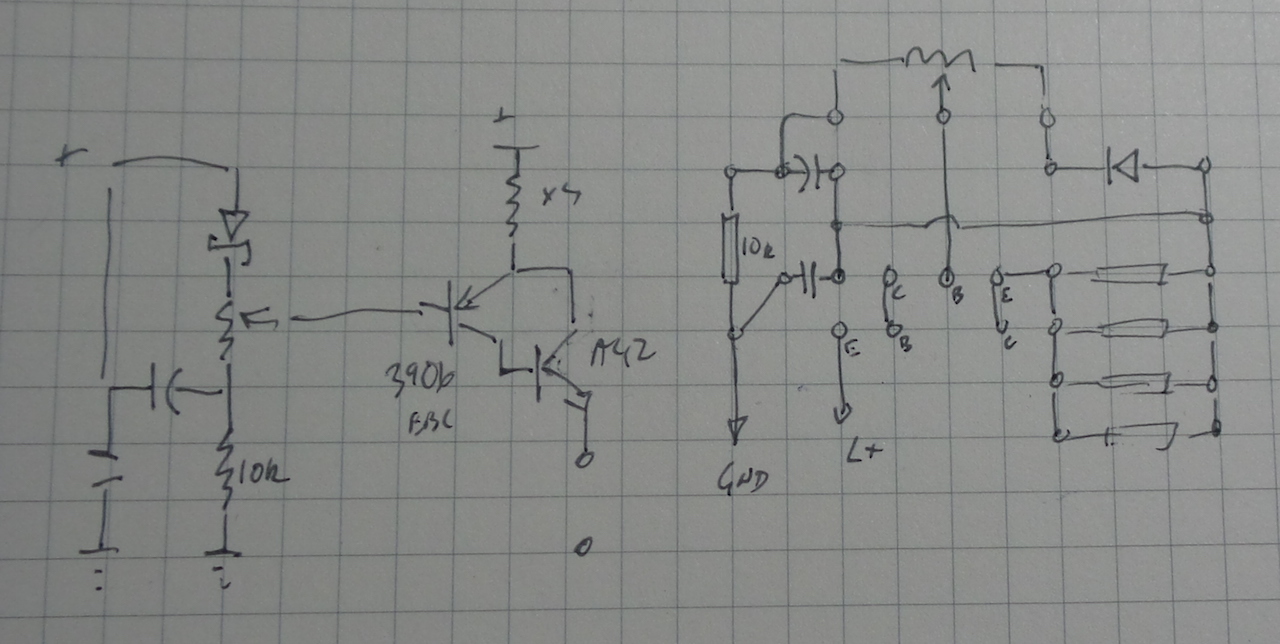 +
+
x4
3906
EBC
A42
10k
10k
C
B
E
E
B
C
L+
GND